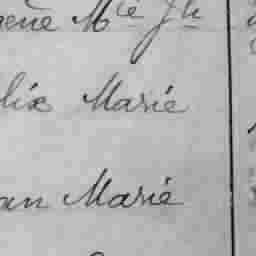 ène Mie Jh
lix Marie
an Marie